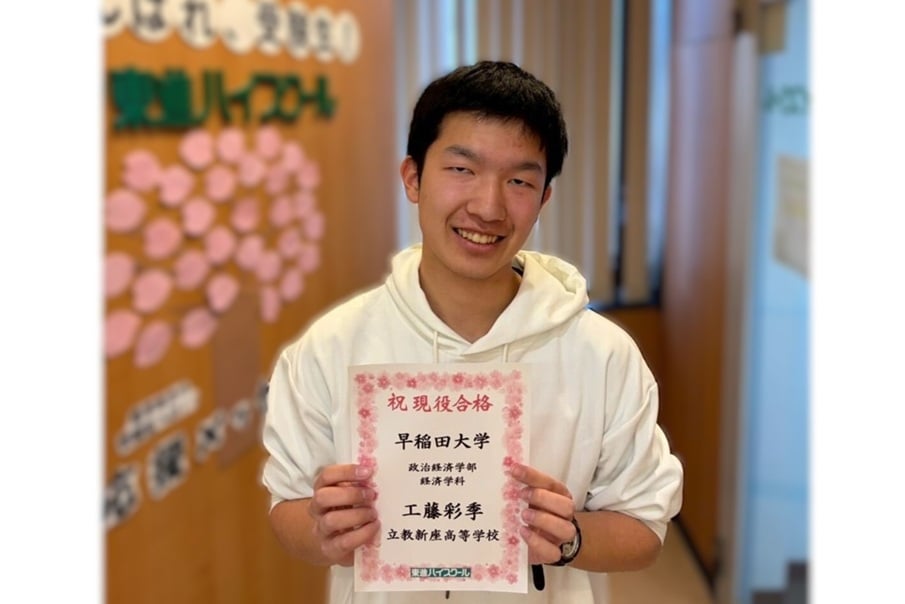 ばれ、受験生!
東進ハイスクール
応援メッ
祝 現役合格
早稲田大学
政治経済学部
経済学科
工藤彩季
立教新座高等学校
東進ハイスクール